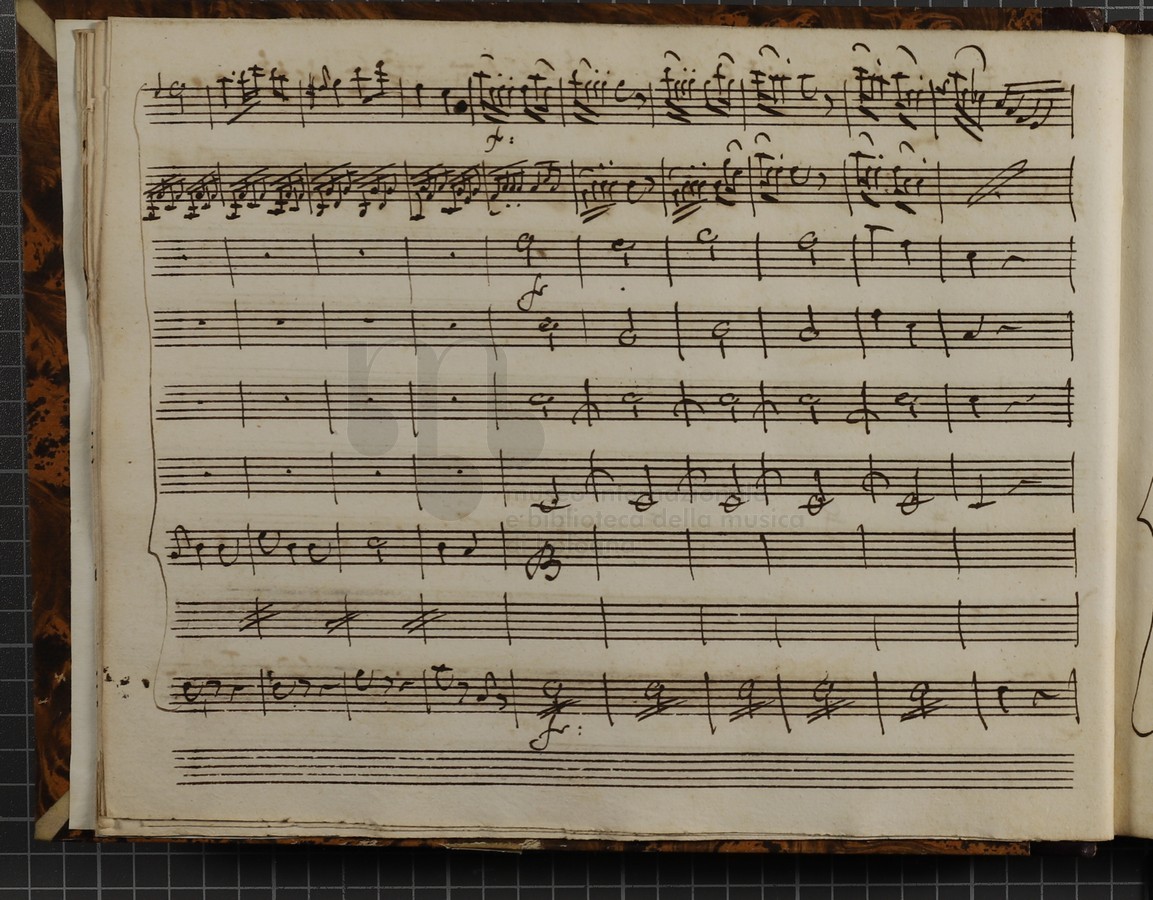 f:
f
museo internazionale
e biblioteca della musica
di bologna
f: